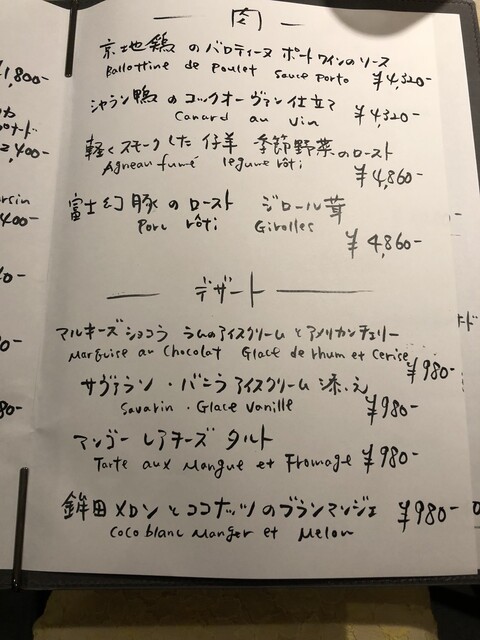 肉
京地鶏 の バロティーヌ ポートワインのソース
Ballottine de Poulet Sauce porto ¥4,320-
シャラン鴨 の コックオーヴァン 仕立て
Canard au Vin ¥4,320-
軽くスモークした 仔羊 季節野菜のロースト
Agneau fumé legume rôti
¥4,860-
富士幻豚 の ロースト ジロール茸
Porc rôti Girolles
¥4,860-
デザート
マルキーズショコラ ラムのアイスクリーム と アメリカンチェリー
Marguise au Chocolat Glace de rhum et Cerise ¥980-
サヴァラン ・ バニラアイスクリーム 添え
Savarin ・ Glace Vanille ¥980-
マンゴー レアチーズ タルト
Tarte aux Mangue et Fromage ¥980-
鉾田メロン と ココナッツ の ブランマンジェ ¥980-
Coco blanc Manger et Melon
1,800-
2,400-
400-